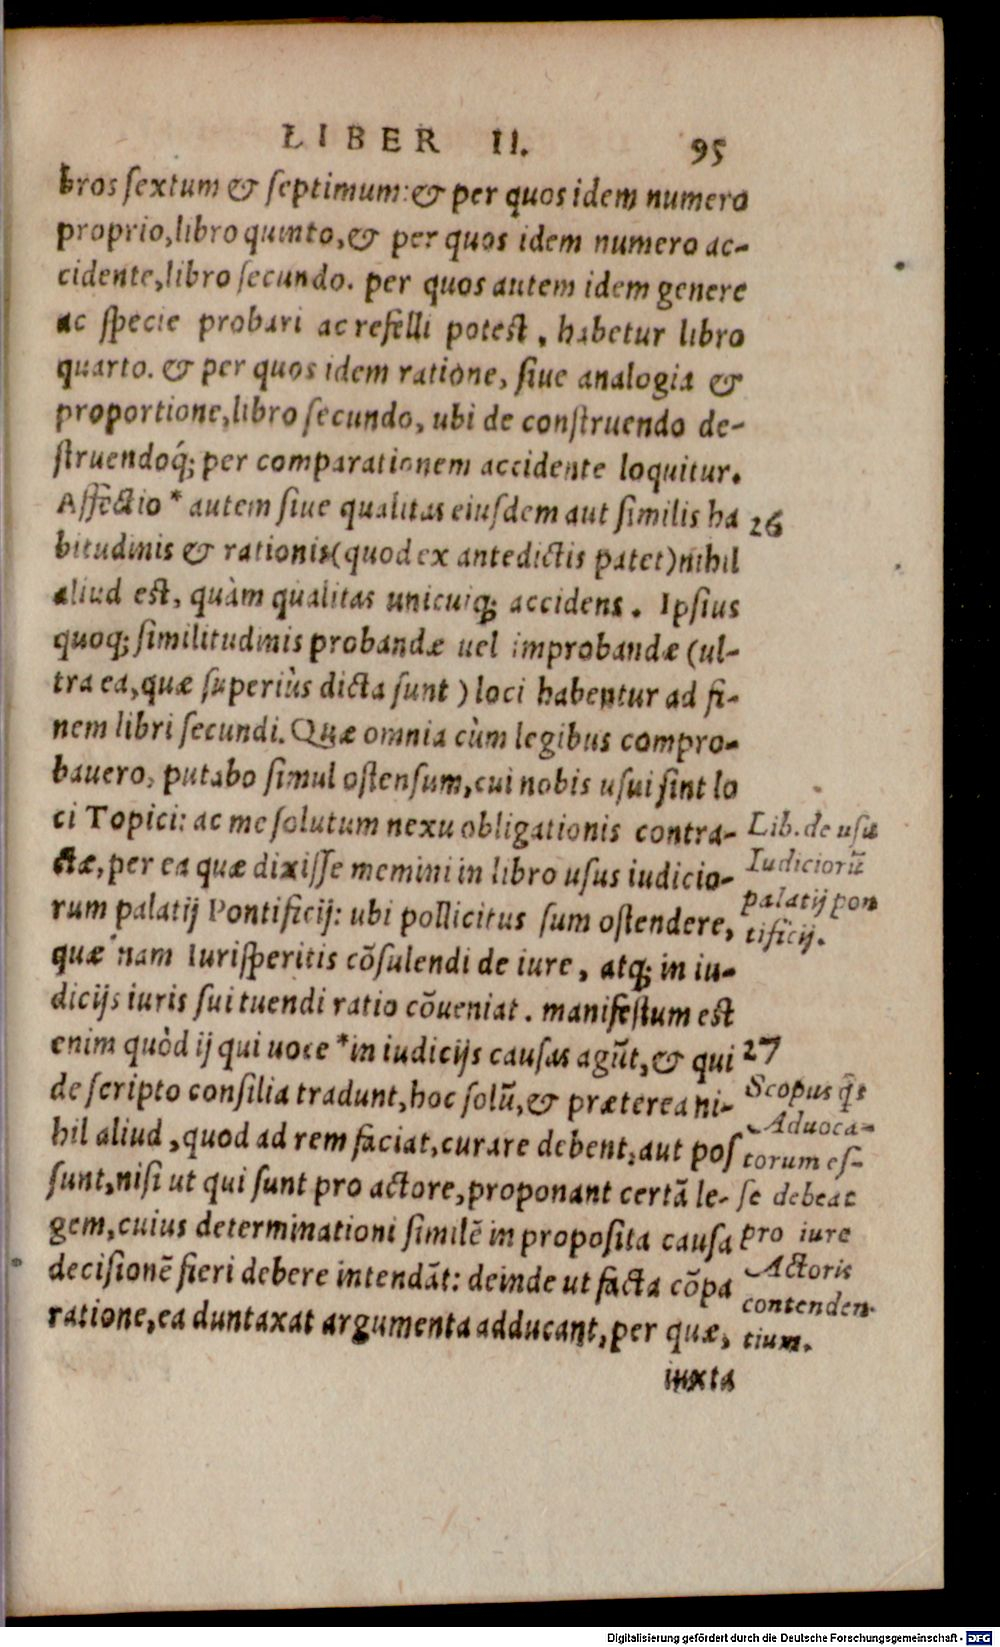 LIBER II. 95
bros sextum & septimum: & per quos idem numero
proprio, libro quinto, & per quos idem numero ac-
cidente, libro secundo. per quos autem idem genere
ac specie probari ac refelli potest, habetur libro
quarto. & per quos idem ratione, siue analogia &
proportione, libro secundo, ubi de construendo de-
struendoq́; per comparationem accidente loquitur.
Affectio * autem siue qualitas eiusdem aut similis ha
26
bitudinis & rationis (quod ex antedictis patet) nihil
aliud est, quàm qualitas unicuiq; accidens. Ipsius
quoq; similitudinis probandæ uel improbandæ (ul-
tra ea, quæ superiùs dicta sunt) loci habentur ad fi-
nem libri secundi. Quæ omnia cùm legibus compro-
bauero, putabo simul ostensum, cui nobis usui sint lo
ci Topici: ac me solutum nexu obligationis contra-
ctæ, per ea quæ dixisse memini in libro usus iudicio-
rum palatij Pontificij: ubi pollicitus sum ostendere,
quæ nam Iurisperitis cõsulendi de iure, atq; in iu-
dicijs iuris sui tuendi ratio cõueniat. manifestum est
enim quòd ij qui uoce * in iudicijs causas agũt, & qui
de scripto consilia tradunt, hoc solũ, & præterea ni-
hil aliud, quod ad rem faciat, curare debent, aut pos
sunt, nisi ut qui sunt pro actore, proponant certã le-
gem, cuius determinationi similẽ in proposita causa
decisionẽ fieri debere intendãt: deinde ut facta cõpa
ratione, ea duntaxat argumenta adducant, per quæ,
iuxta
Lib. de usu
Iudiciorũ
palatij pon
tificij.
27
Scopus q̃s
Aduoca-
torum es-
se debeat
pro iure
Actoris
contenden-
tium.
Digitalisierung gefördert durch die Deutsche Forschungsgemeinschaft - DFG